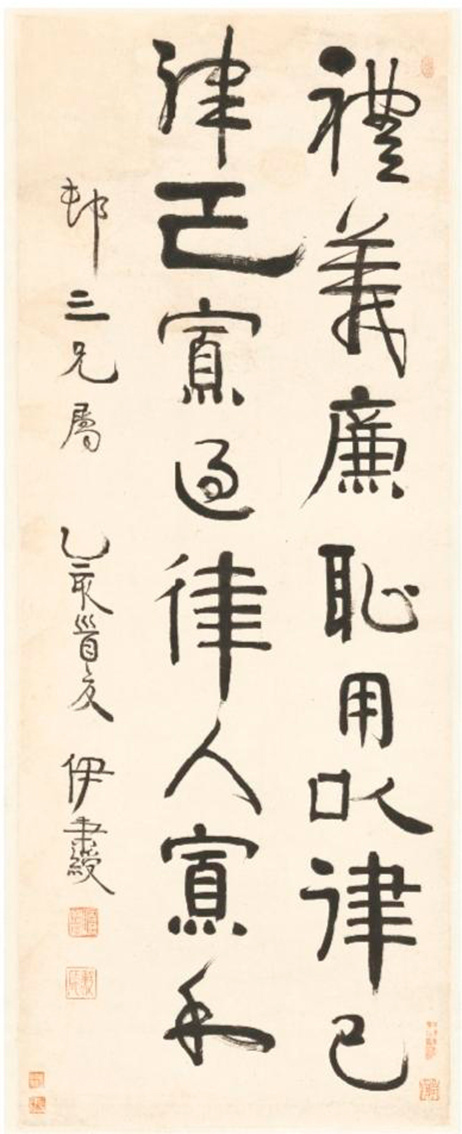 禮義廉恥用以律己
律己寡過律人寡
邨三兄屬 乙亥首夏 伊秉綬